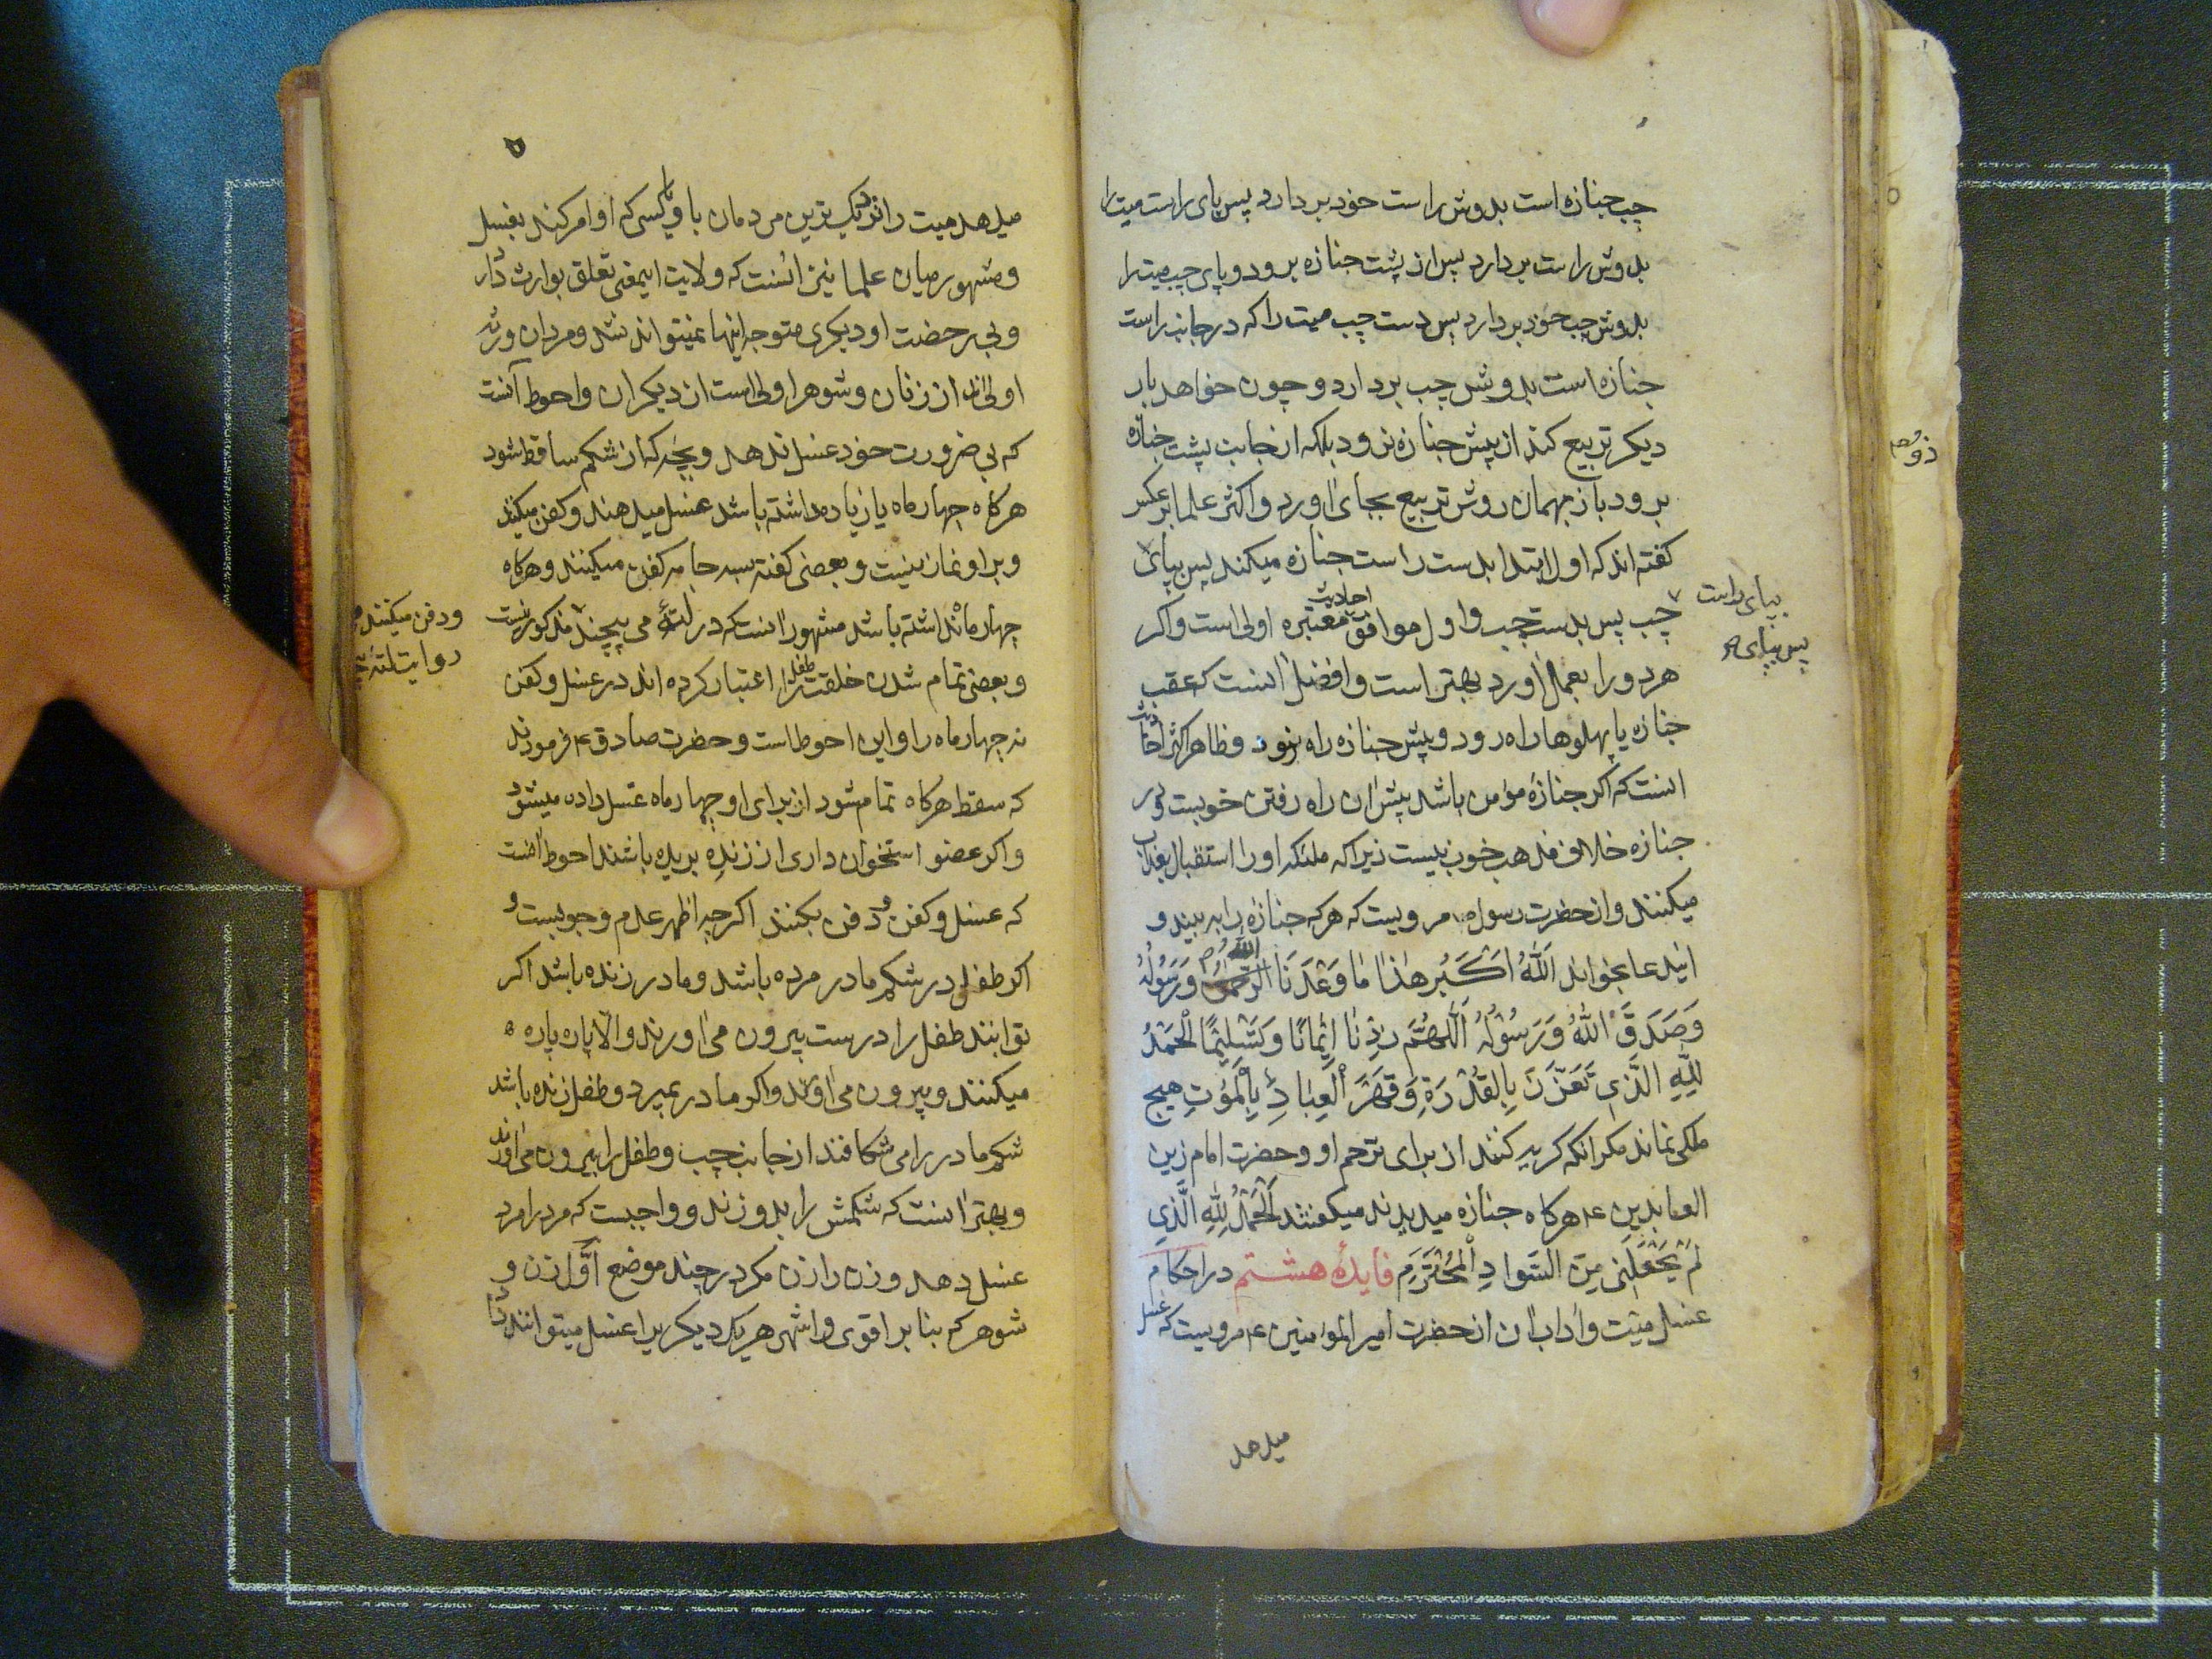 چپ جنازه است بدوش راست خود بردارد پس پای راست میترا
بدوش راست بردارد پس از پشت جنازه برود و پای چپ میترا
بدوش چپ خود بردارد پس دست چپ میت را که در جانب راست
جنازه است بدوش چپ بردارد و چون خواهد بار
دیکر تربیع کند از پیش جنازه نرود بلکه از جانب پشت جنازه
برود باز بهمان روش تربیع بجای اورد و اکثر علما بر عکس
کفته اند که اول ابتدا بدست راست جنازه میکند پس بپای
چپ پس بدست چپ و اول موافق احادیث معتبره اولی است و اکر
بپای راست
پس بپای
هر دو را بعمل اورد بهتر است و افضل انست که عقب
جنازه یا پهلوها راه رود و پیش جنازه راه نرود و ظاهر اکثر احادیث
انست که اکر جنازه مؤمن باشد پیش ان راه رفتن خوبست و در
جنازه خلاف مذهب خوب نیست زیرا که ملئکه او را استقبال بعذاب
میکنند و از حضرت رسول ص مرویست که هر که جنازه را به بیند و
ایندعا بخواند اَللّهُ اَکْبَر هذا ما وَعَدَنَا اللّه وَرَسُولُهُ
وَصَدَقَ اللّهُ وَرَسُولُهُ اَللّهُمَّ زِدْنا اِیمانًا وَتَسْلِیمًا اَلْحَمْدُ
لِلّهِ الَّذِی تَعَزَّزَ بِالْقُدْرَةِ وَقَهَرَ الْعِبادَ بِالْمَوْتِ هیچ
ملکی نماند مکر انکه کریه کند از برای ترحم او و حضرت امام زین
العابدین ع هرکاه جنازه میدیدند میکفتند اَلْحَمْدُ لِلّهِ الَّذِی
لَمْ یَجْعَلْنِی مِنَ السَّوادِ الْمُخْتَرَمِ فایدۀ هشتم در احکام
غسل میّت و اداب ان از حضرت امیر المؤمنین ع مرویست که غسل
میدهد
میدهد میت را نزدیک ترین مردمان باو یا کسی که او امر کند بغسل
و مشهور میان علما نیز انست که ولایت اینمعنی تعلق بوارث دارد
و بی رخصت او دیکری متوجه اینها نمیتواند شد و مردان ورثه
اولی اند از زنان و شوهر اولی است از دیکران و احوط آنست
که بی ضرورت خود غسل ندهد و بچه که از شکم ساقط شود
هرکاه چهار ماه یا زیاده داشته باشد غسل میدهند و کفن میکنند
و بر او نماز نیست و بعضی کفته بسه جامه کفن میکنند و هرکاه
چهار ماه نداشته باشد مشهور انست که در لتۀ می پیچند مذکور نیست
و دفن میکنند
روایت لته
و بعضی تمام شدن خلقت طفل را اعتبار کرده اند در غسل و کفن
نه چهار ماه را و این احوط است و حضرت صادق ع فرمودند
که سقط هرکاه تمام شود از برای او چهار ماه غسل داده میشود
و اکر عضو استخوان داری از زنده بریده باشند احوط انست
که غسل و کفن و دفن بکنند اکر چه اظهر عدم وجوبست و
اکر طفلی در شکم مادر مرده باشد و مادر زنده باشد اکر
توانند طفل را درست بیرون می اورند و الّا پاره پاره
میکنند و بیرون می اورند و اکر مادر بمیرد و طفل زنده باشد
شکم مادر را می شکافند از جانب چپ و طفل را بیرون می اورند
و بهتر انست که شکمش را بدوزند و واجبست که مرد را مرد
غسل دهد و زن را زن مکر در چند موضع اوّل زن و
شوهر که بنا بر اقوی و اشهر هر یک دیکریرا غسل میتوانند داد